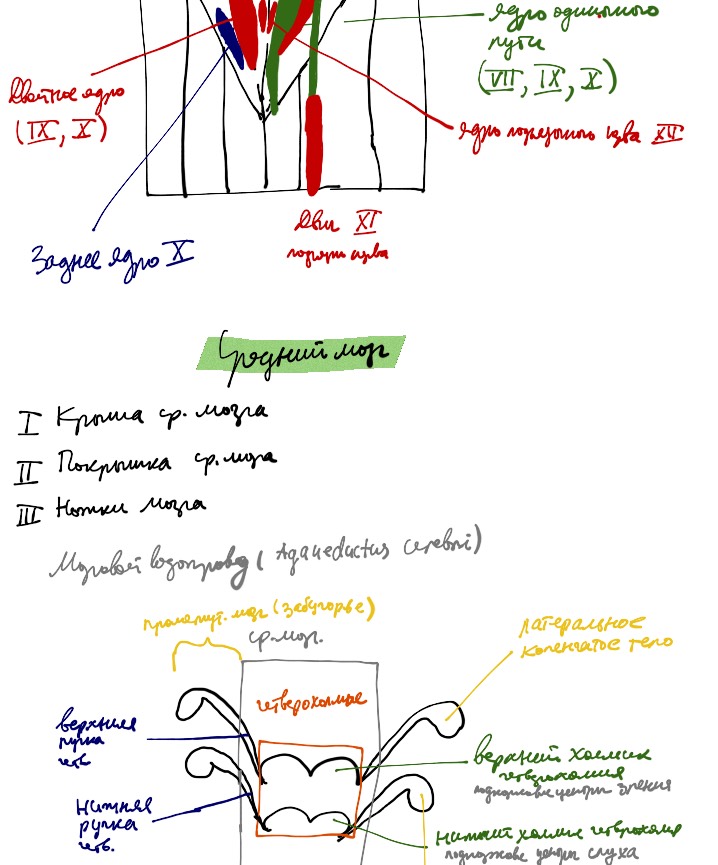 ядро одиночного
пути
(VII, IX, X)
Двойное ядро
(IX, X)
ядро подъязычного нерва XII
Заднее ядро X
Двиг XI
нерва
Средний мозг
I Крыша ср. мозга
II Покрышка ср. мозга
III Ножки мозга
Мозговой водопровод (Aquaeductus cerebri)
промежут. мозг (забугорье)
ср. мозг.
латеральное
коленчатое тело
четверохолмие
верхняя
ручка
четв.
верхний холмик
четверохолмия
подкорковые центры зрения
нижняя
ручка
четв.
нижний холмик четверохолмия
подкорковые центры слуха